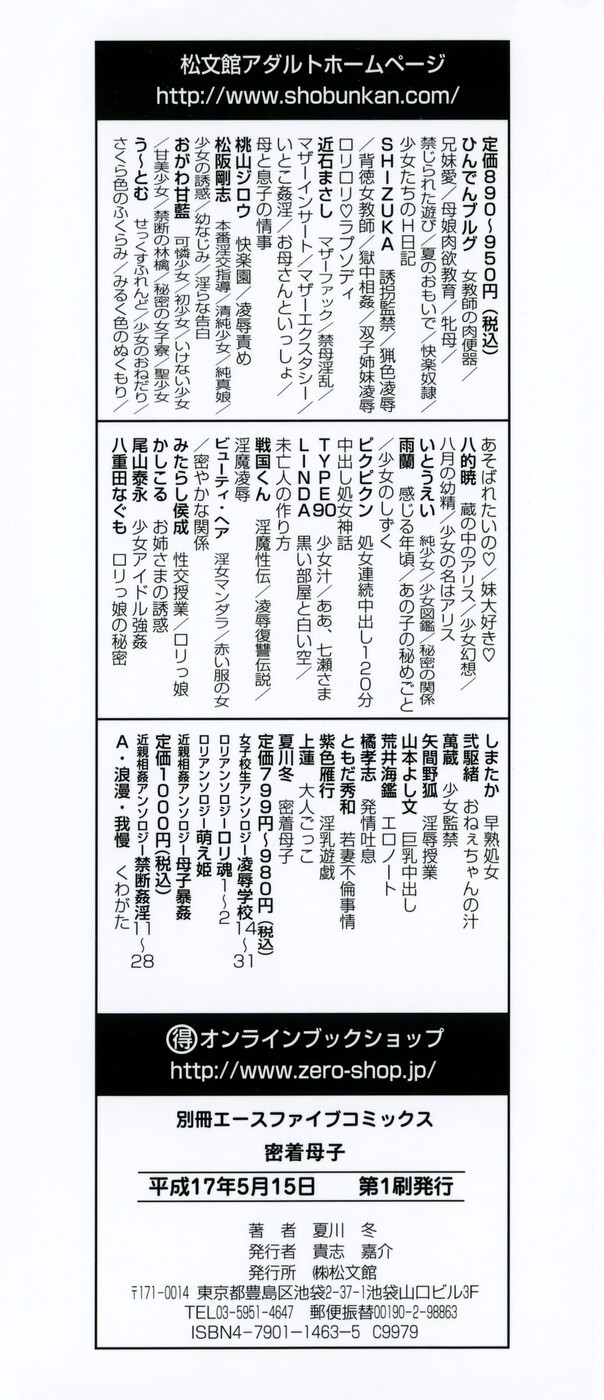 松文館アダルトホームページ
http://www.shobunkan.com/
定価890〜950円(税込)
ひんでんブルグ 女教師の肉便器/
兄妹愛/母娘肉欲教育/牝母/
禁じられた遊び/夏のおもいで/快楽奴隷/
少女たちのH日記
SHIZUKA 誘拐監禁/猟色凌辱
/背徳女教師/獄中相姦/双子姉妹凌辱
ロリロリ♡ラプソディ
近石まさし マザーファック/禁母淫乱/
マザーインサート/マザーエクスタシー/
いとこ姦淫/お母さんといっしょ/
母と息子の情事
桃山ジロウ 快楽園/凌辱責め
松阪剛志 本番淫交指導/清純少女/純真娘/
少女の誘惑/幼なじみ/淫らな告白
おがわ甘藍 可憐少女/初少女/いけない少女
/甘美少女/禁断の林檎/秘密の女子寮/聖少女
う〜とむ せっくすふれんど/少女のおねだり/
さくら色のふくらみ/みるく色のぬくもり/
あそばれたいの♡/妹大好き♡
八的暁 蔵の中のアリス/少女幻想/
八月の幼精/少女の名はアリス
いとうえい 純少女/少女図鑑/秘密の関係
雨蘭 感じる年頃/あの子の秘めごと
/少女のしずく
ピクピクン 処女連続中出し120分
中出し処女神話
TYPE90 少女汁/ああ、七瀬さま
LINDA 黒い部屋と白い空/
未亡人の作り方
戦国くん 淫魔性伝/凌辱復讐伝説/
淫魔凌辱
ビューティ・ヘア 淫女マンダラ/赤い服の女
/密やかな関係
みたらし侯成 性交授業/ロリっ娘
かしこる お姉さまの誘惑
尾山泰永 少女アイドル強姦
八重田なぐも ロリっ娘の秘密
しまたか 早熟処女
弐駆緒 おねぇちゃんの汁
萬蔵 少女監禁
矢間野狐 淫辱授業
山本よし文 巨乳中出し
荒井海鑑 エロノート
橘孝志 発情吐息
ともだ秀和 若妻不倫事情
紫色雁行 淫乳遊戯
上蓮 大人ごっこ
夏川冬 密着母子
定価799円〜980円(税込)
女子校生アンソロジー凌辱学校14〜31
ロリアンソロジーロリ魂1〜2
ロリアンソロジー萌え姫
近親相姦アンソロジー母子暴姦
定価1000円(税込)
近親相姦アンソロジー禁断姦淫11〜28
A・浪漫・我慢 くわがた
㊝オンラインブックショップ
http://www.zero-shop.jp/
別冊エースファイブコミックス
密着母子
平成17年5月15日 第1刷発行
著 者 夏川 冬
発行者 貴志 嘉介
発行所 ㈱松文館
〒171-0014 東京都豊島区池袋2-37-1池袋山口ビル3F
TEL03-5951-4647 郵便振替00190-2-98863
ISBN4-7901-1463-5 C9979